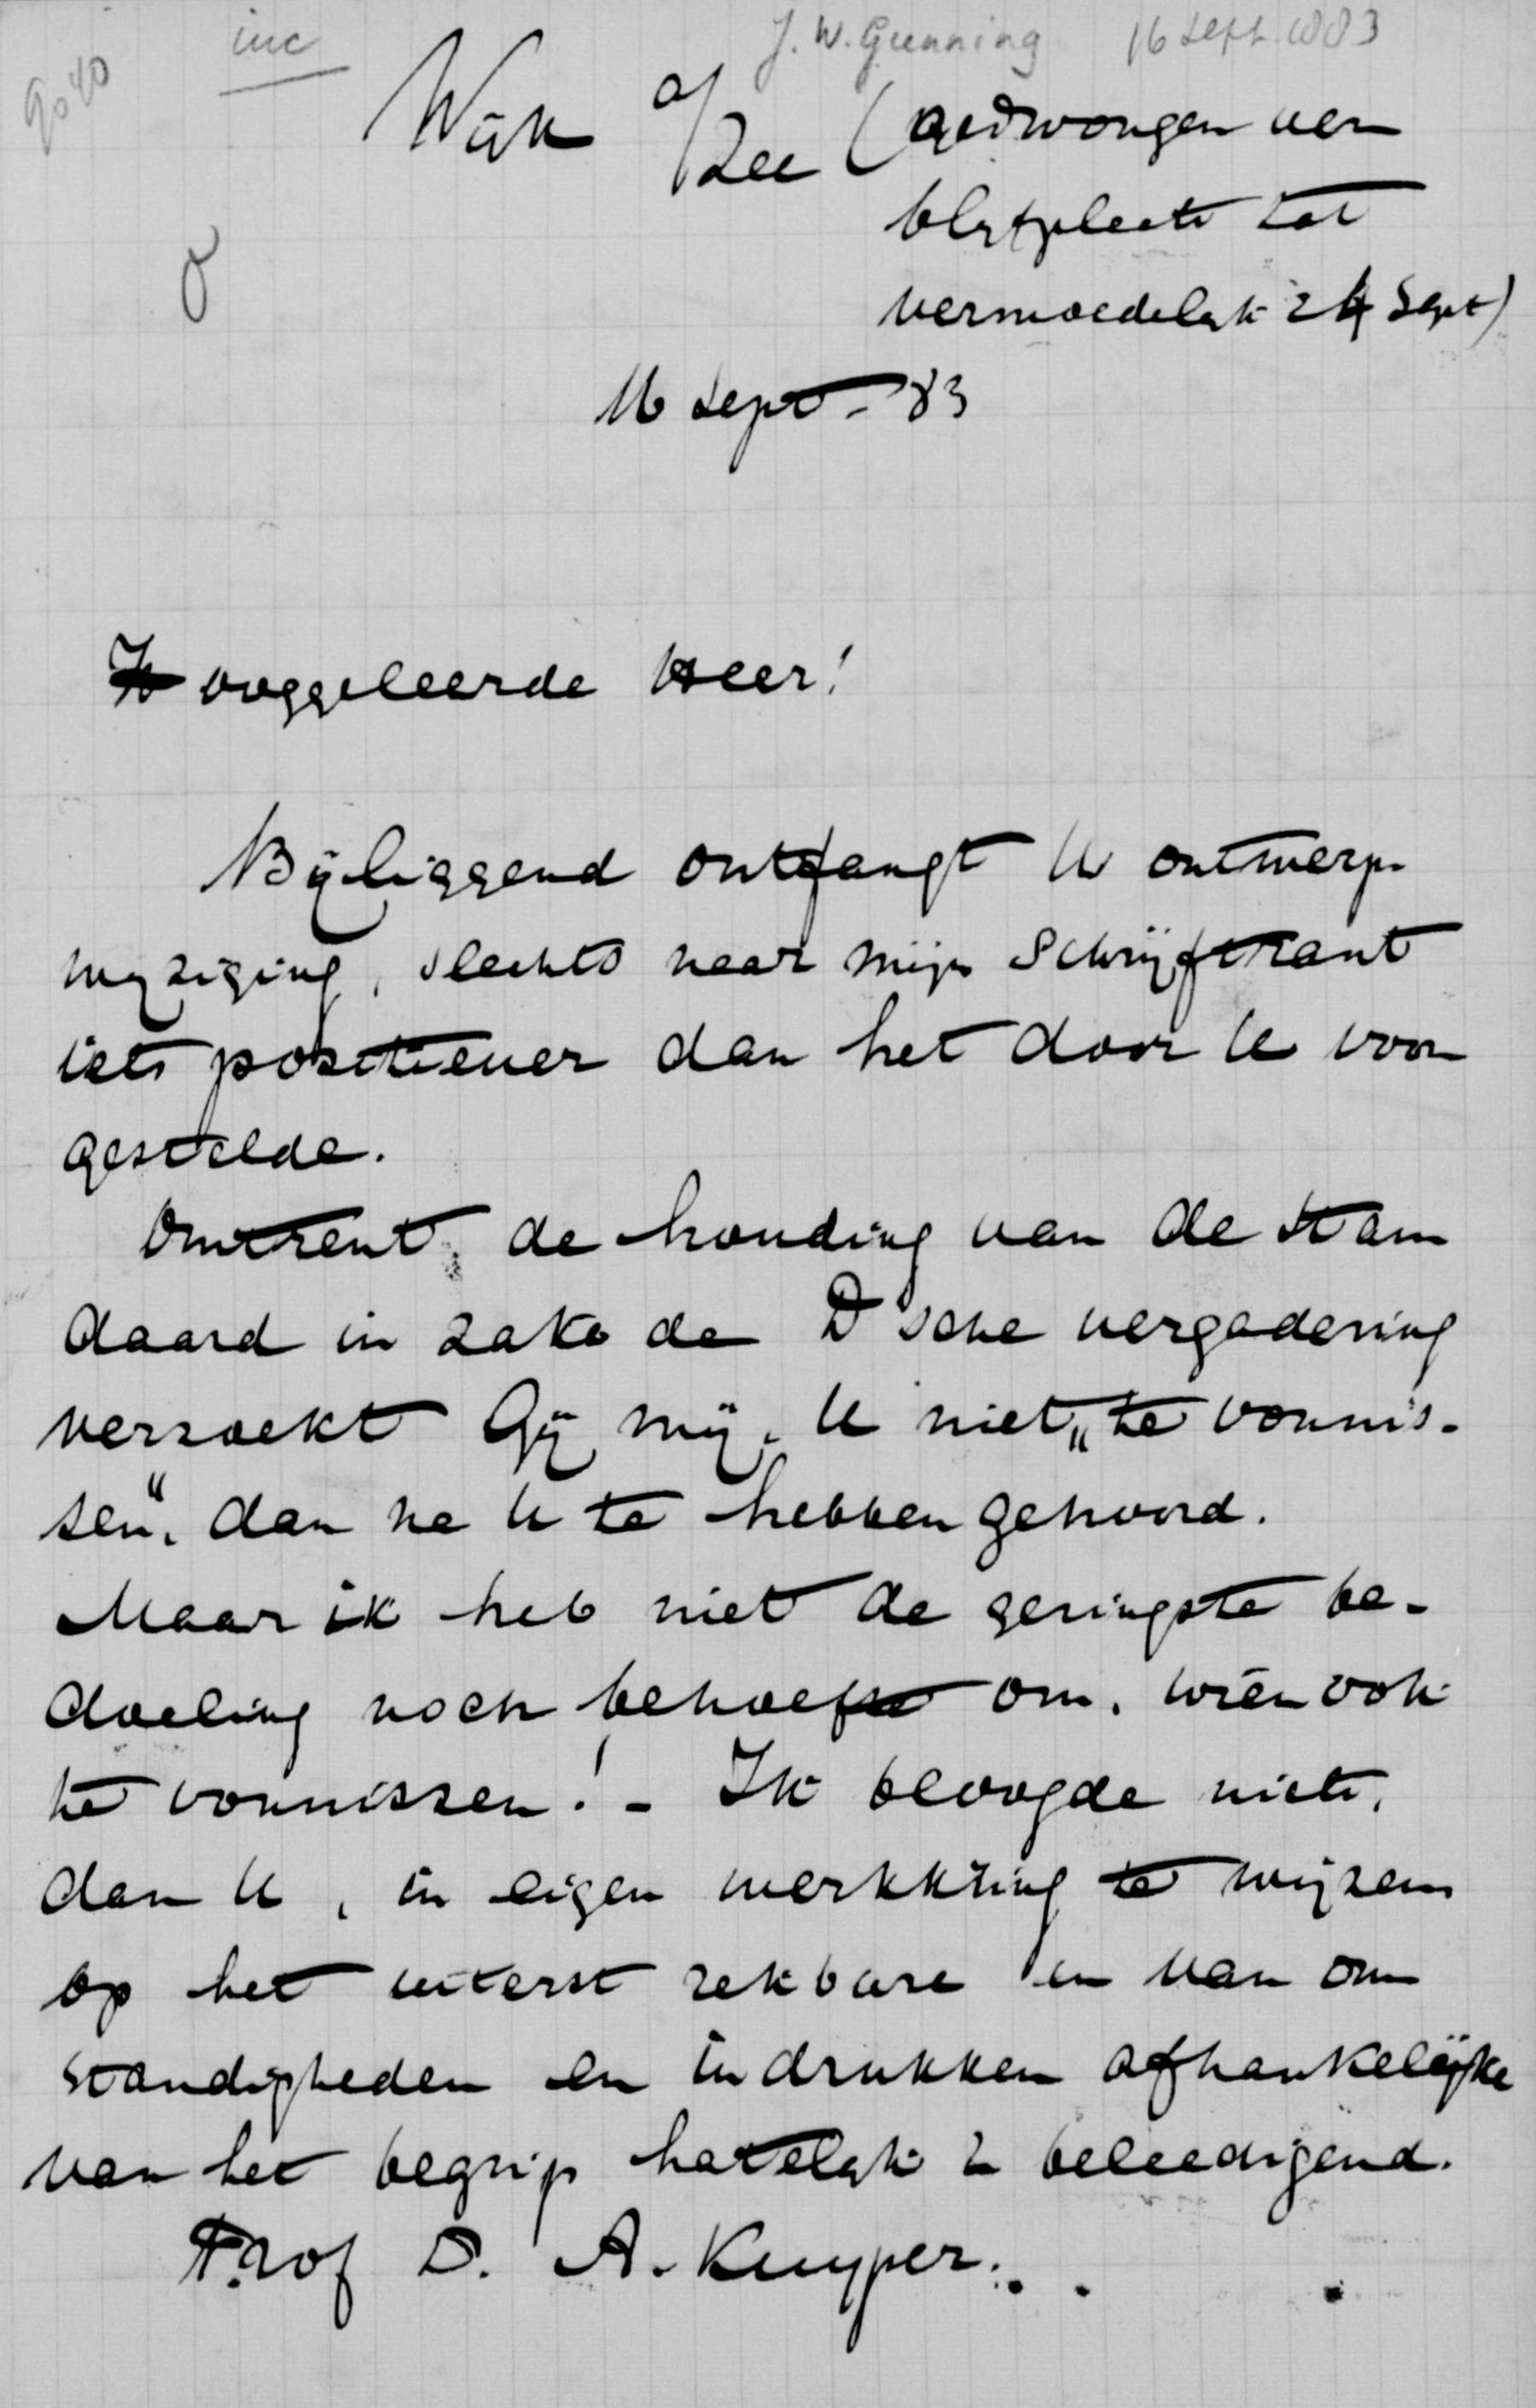 inc
J. W. Gunning 16 Sept. 1883
9040
Wijk a/Zee (gedwongen ver
blijfplaats tot
vermoedelijk 24 Sept)
16 Sept - 83
Hooggeleerde Heer!
Bijliggend ontfangt U ontwerp-
wijziging, slechts naar mijn schrijftrant
iets positiever dan het door U voor
gestelde.
Omtrent de houding van de Stan
daard in zake de D'sche vergadering
verzoekt Gij mij, U niet „te vonnis-
sen", dan na U te hebben gehoord.
Maar ik heb niet de geringste be-
doeling noch behoefte om, wien ook
te vonnissen! - Ik beoogde niets,
dan U, in eigen werkkring te wijzen
op het uiterst rekbare en van om
standigheden en indrukken afhankelijke
van het begrip hatelijk & beleedigend.
Prof D. A. Kuyper.